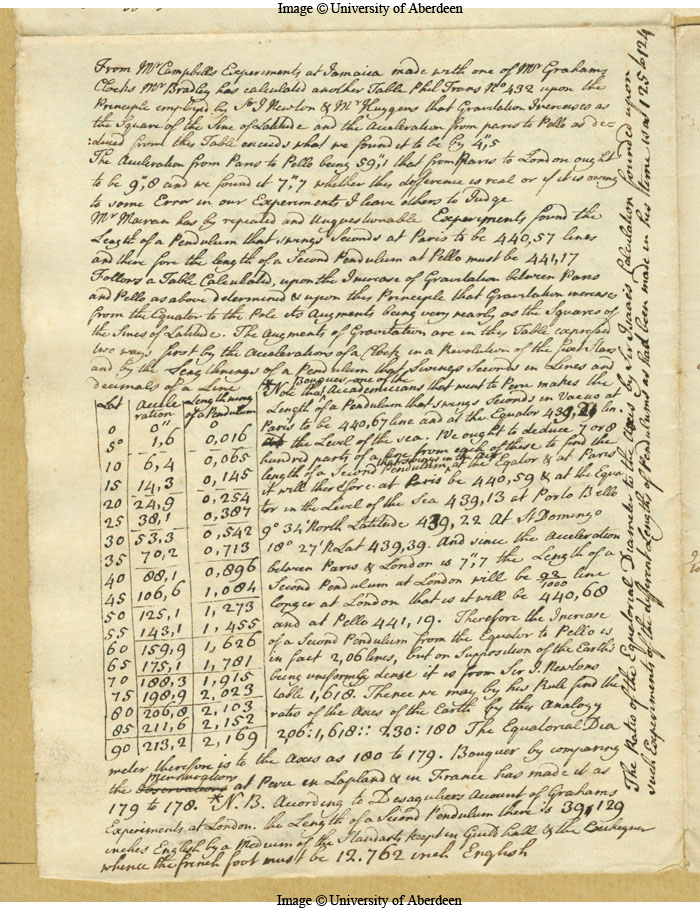 Image © University of Aberdeen
From Mr Campbells Experiments at Jamaica made with one of Mr Grahams
Clocks Mr Bradley has calculated another Table Phil Trans No 432 upon the
Principle employed by Sr I Newton & Mr Huygens that Gravitation Increases as
the Square of the Sine of Latitude and the Acceleration from paris to Pello as de-
:duced from this Table exceeds what we found it to be by 4",5
The Acceleration from Paris to Pello being 59",1 that from Paris to London ought
to be 9",8 and we found it 7",7 whether this difference is real or if it is owing
to some Error in our Experiments I leave others to Judge
Mr Mairan has by repeated and Unquestionable Experiments found the
Length of a Pendulum that swings Seconds at Paris to be 440,57 lines
and there fore the length of a Second Pendulum at Pello must be 441,17
Follows a Table Calculated, upon the Increase of Gravitation between Paris
and Pello as above determind & upon this Principle that Gravitation increases
from the Equator to the Pole its Augments being very nearly as the Squares of
the Sines of Latitude. The Augments of Gravitation are in this Table expressed
two ways first by the Accelerations of a Clock in a Revolution of the fixed Stars
and by the Lengthnings of a Pendulum that Swings Seconds in Lines and
decimals of a Line
Lat Accele ration Lengthning of a Pendulum
0 0" 0
5° 1,6 0,016
10 6,4 0,065
15 14,3 0,145
20 24,9 0,254
25 38,1 0,387
30 53,3 0,542
35 70,2 0,713
40 88,1 0,896
45 106,6 1,084
50 125,1 1,273
55 143,1 1,455
60 159,9 1,626
65 175,1 1,781
70 188,3 1,915
75 198,9 2,023
80 206,8 2,103
85 211,6 2,152
90 213,2 2,169
Bouguer one of the
* Note that Accademicians that went to Peru makes the
Length of a Pendulum that swings Seconds in Vacuo at
Paris to be 440,67 line and at the Equator 439,21 lin
the Level of the sea. We ought to deduce 7 or 8
hundred parts of a line from each of these to find the
length of a Second Pendulum that swings in the Air at the Eqator & at Paris
it will therefore at Paris be 440,59 & at the Equa
tor in the Level of the Sea 439,13 at Porto Bello
9° 34' North Latitude 439,22 At St Domingo
18° 27' N Lat 439,39. And since the Acceleration
between Paris & London is 7",7 the Length of a
Second Pendulum at London will be 93/1000 line
longer at London that is it will be 440,68
and at Pello 441,19. Therefore the Increase
of a Second Pendulum from the Equator to Pello is
in fact 2,06 lines, but on Supposition of the Earth's
being uniformly dense it is from Sir I. Newtons
table 1,618. Thence we may by his Rule find the
ratio of the Axes of the Earth by this Analogy
206:1,618::230:180 The Equatorial Dia
meter therefore is to the Axes as 180 to 179. Bouguer by comparing
the Observations Mensurations at Peru in Lapland & in France has made it as
179 to 178. * N.B. According to Desaguliers Account of Grahams
Experiments at London. the Length of a Second Pendulum there is 39,129
inches English by a Medium of the Standarts kept in Guild hall & the Exchequer
whence the french foot must be 12.762 inch English
The Ratio of the Equatorial Diameter to the Axis by Sir Isaac's Calculation founded upon
such Experiments of the different Lengths of Pendulums as had been made in his time is as 125 to 124
Image © University of Aberdeen